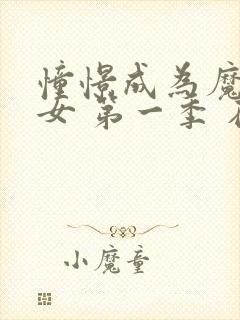 憧憬成為魔
女 第一季
小魔童